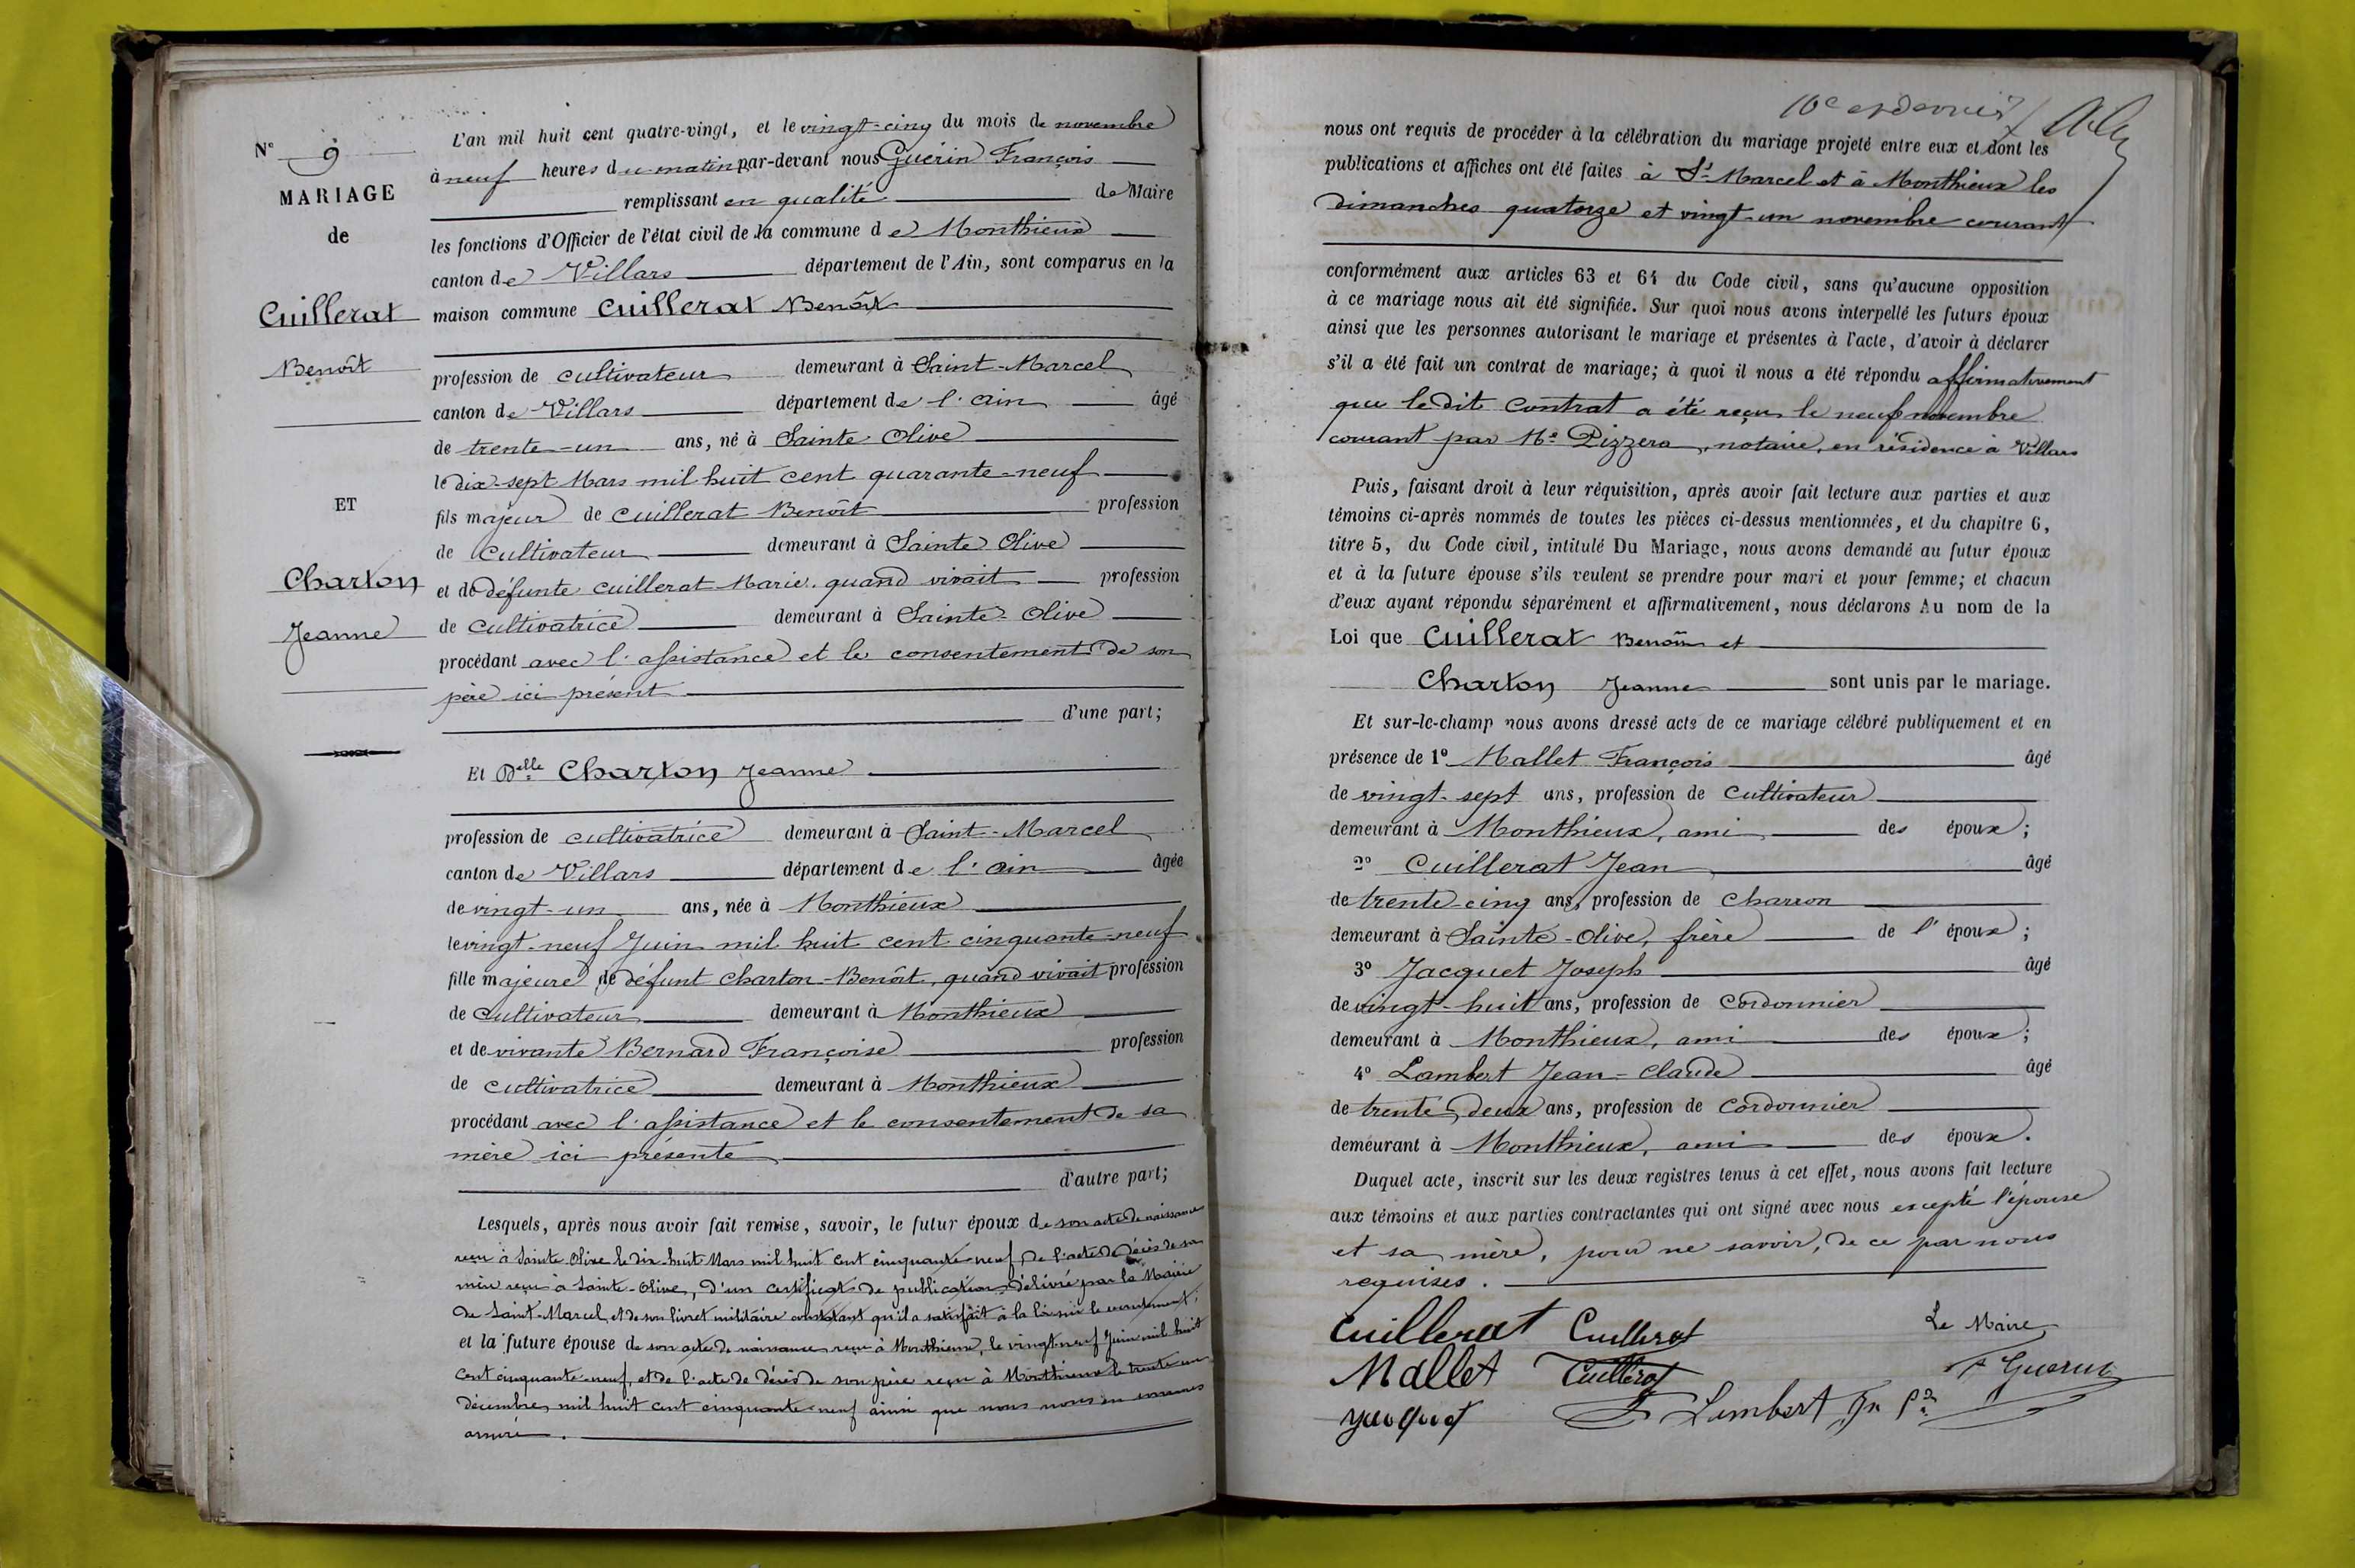 N° 9
MARIAGE
de
Cuillerat
Benoît
ET
Charton
Jeanne
L'an mil huit cent quatre-vingt, et le vingt-cinq du mois de novembre
à neuf heures du matin par-devant nous Guérin François
remplissant en qualité de Maire
les fonctions d'Officier de l'état civil de la commune de Monthieux
canton de Villars département de l'Ain, sont comparus en la
maison commune Cuillerat Benoît
profession de cultivateur demeurant à Saint-Marcel
canton de Villars département de l'ain âgé
de trente-un ans, né à Sainte Olive
le dix-sept Mars mil huit cent quarante-neuf
fils majeur de Cuillerat Benoît profession
de Cultivateur demeurant à Sainte Olive
et de défunte Cuillerat Marie quand vivait profession
de Cultivatrice demeurant à Sainte-Olive
procédant avec l'assistance et le consentement de son
père ici présent
d'une part;
Et Delle Charton Jeanne
profession de cultivatrice demeurant à Saint-Marcel
canton de Villars département de l'ain âgée
de vingt-un ans, née à Monthieux
le vingt-neuf Juin mil huit cent cinquante-neuf
fille majeure de défunt Charton Benoît, quand vivait profession
de Cultivateur demeurant à Monthieux
et de vivante Bernard Françoise profession
de cultivatrice demeurant à Monthieux
procédant avec l'assistance et le consentement de sa
mère ici présente
d'autre part;
Lesquels, après nous avoir fait remise, savoir, le futur époux de son acte de naissance
reçu à Sainte Olive le dix-huit Mars mil huit cent cinquante-neuf, de l'acte de décès de sa
mère reçu à Sainte-Olive, d'un certificat de publication délivré par la Mairie
de Saint-Marcel et de son livret militaire constatant qu'il a satisfait à la loi sur le recrutement;
et la future épouse de son acte de naissance reçu à Monthieux, le vingt-neuf Juin mil huit
cent cinquante-neuf, et de l'acte de décès de son père reçu à Monthieux le trente-un
décembre mil huit cent cinquante-neuf ainsi que nous nous en sommes
assuré.
10e et dernier
nous ont requis de procéder à la célébration du mariage projeté entre eux et dont les
publications et affiches ont été faites à St Marcel et à Monthieux les
dimanches quatorze et vingt-un novembre courant
conformément aux articles 63 et 64 du Code civil, sans qu'aucune opposition
à ce mariage nous ait été signifiée. Sur quoi nous avons interpellé les futurs époux
ainsi que les personnes autorisant le mariage et présentes à l'acte, d'avoir à déclarer
s'il a été fait un contrat de mariage; à quoi il nous a été répondu affirmativement
que ledit Contrat a été reçu le neuf novembre
courant par Me Pizzera, notaire, en résidence à Villars
Puis, faisant droit à leur réquisition, après avoir fait lecture aux parties et aux
témoins ci-après nommés de toutes les pièces ci-dessus mentionnées, et du chapitre 6,
titre 5, du Code civil, intitulé Du Mariage, nous avons demandé au futur époux
et à la future épouse s'ils veulent se prendre pour mari et pour femme; et chacun
d'eux ayant répondu séparément et affirmativement, nous déclarons Au nom de la
Loi que Cuillerat Benoît et
Charton Jeanne sont unis par le mariage.
Et sur-le-champ nous avons dressé acte de ce mariage célébré publiquement et en
présence de 1° Mallet François âgé
de vingt-sept ans, profession de Cultivateur
demeurant à Monthieux, ami des époux;
2° Cuillerat Jean âgé
de trente-cinq ans, profession de charron
demeurant à Sainte-Olive, frère de l'époux;
3° Jacquet Joseph âgé
de vingt-huit ans, profession de Cordonnier
demeurant à Monthieux, ami des époux;
4° Lambert Jean-Claude âgé
de trente-deux ans, profession de Cordonnier
demeurant à Monthieux, ami des époux.
Duquel acte, inscrit sur les deux registres tenus à cet effet, nous avons fait lecture
aux témoins et aux parties contractantes qui ont signé avec nous excepté l'épouse
et sa mère, pour ne savoir, de ce par nous
requises.
Cuillerat Cuillerat Le Maire
Mallet Cuillerat F Guérin
Jacquet Lambert